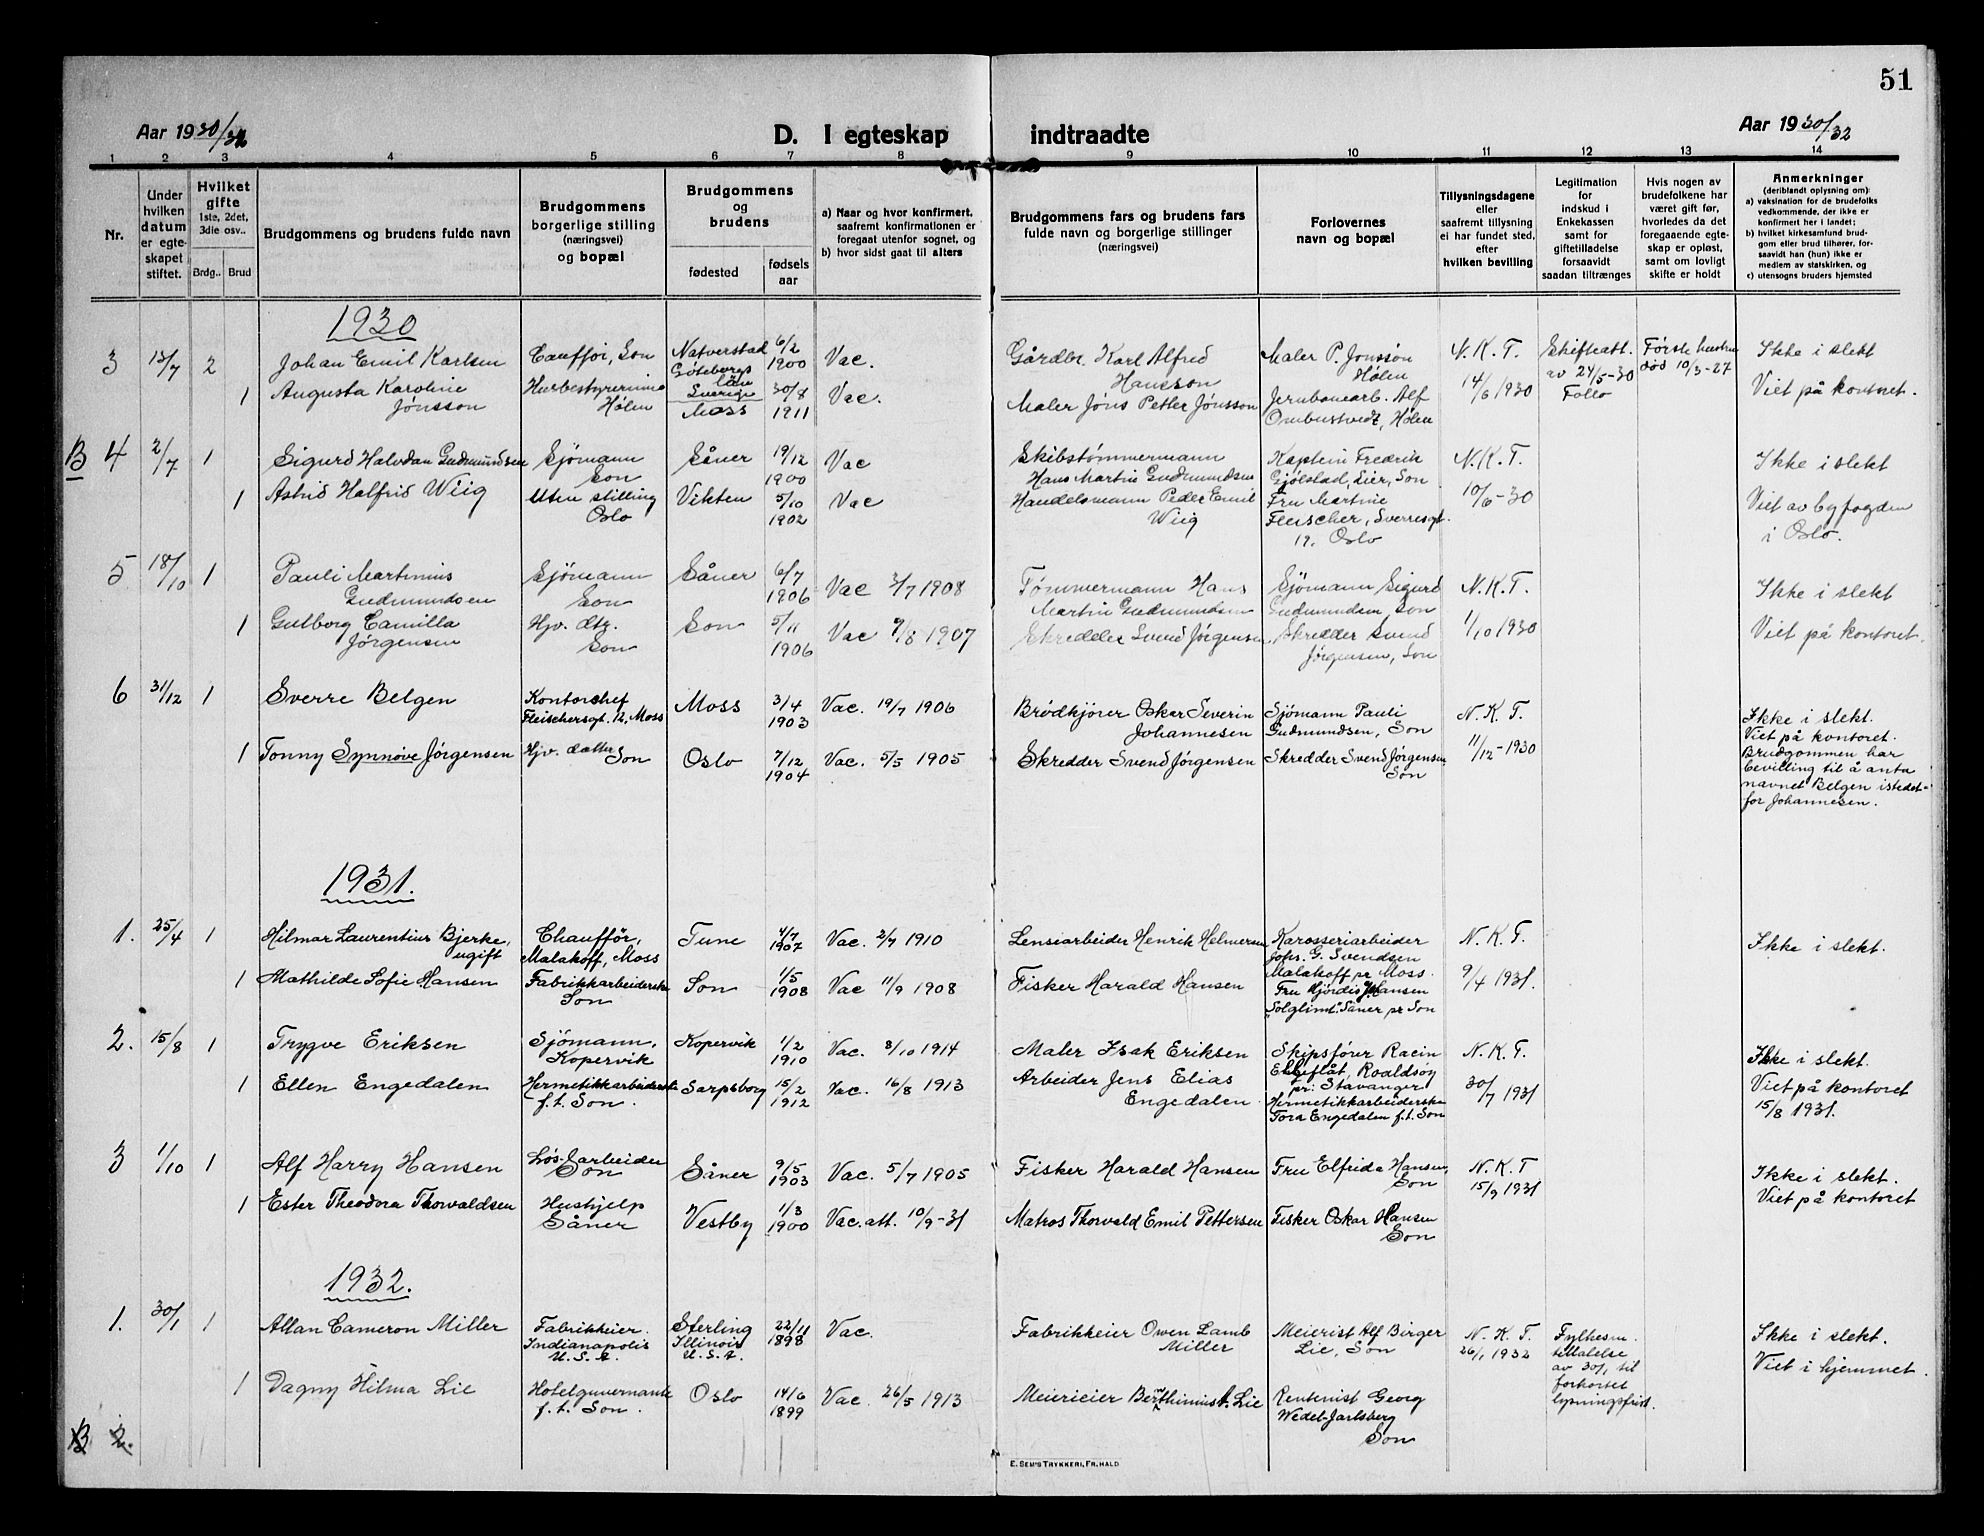 51
Aar 1930/32
D. I egteskap indtraadte
Aar 1930/32
1 2 3 4 5 6 7 8 9 10 11 12 13 14
Nr.
Under hvilken datum er egte-skapet stiftet.
Hvilket gifte 1ste, 2det, 3die osv..
Brdg..
Brud
Brudgommens og brudens fulde navn
Brudgommens borgerlige stilling (næringsvei) og bopæl
Brudgommens og brudens
fødested
fødsels aar
a) Naar og hvor konfirmert, saafremt konfirmationen er foregaat utenfor sognet, og
b) hvor sidst gaat til alters
Brudgommens fars og brudens fars fulde navn og borgerlige stillinger (næringsvei)
Forlovernes navn og bopæl
Tillysningsdagene eller saafremt tillysning ei har fundet sted, efter hvilken bevilling
Legitimation for indskud i Enkekassen samt for giftetilladelse forsaavidt saadan tiltrænges
Hvis nogen av brudefolkene har været gift før, hvorledes da det foregaaende egte-skap er opløst, samt om lovligt skifte er holdt
Anmerkninger (deriblandt oplysning om):
a) vaksination for de brudefolks vedkommende, der ikke er konfirmert her i landet;
b) hvilket kirkesamfund brud-gom eller brud tilhører, for-saavidt han (hun) ikke er medlem av statskirken, og
c) utensogns bruders hjemsted
1930
3 13/7 2 Johan Emil Karlsen Cauffør, Son Natverstad Göteborgs län Sverige 6/2 1900 Vac. Gårdbr. Karl Alfred Hansson Maler P. Jonssön Hølen N. K. T. 14/6 1930 Skifteatt. av 24/5-30 Follo Første hustru død 10/3-27 Ikke i slekt
1 Augusta Karoline Jönsson Husbestyrerinne Hølen Moss 30/8 1911 Vac. Maler Jöns Petter Jönsson Jernbanearb. Alf Ombustvedt, Hølen Viet på kontoret.
B 4 2/7 1 Sigurd Halvdan Gudmundsen Sjømann Son Såner 19/12 1900 Vac Skibstømmermann Hans Martin Gudmundsen Kaptein Fredrik Gjølstad, Lier, Son N. K. T. 10/6-30 Ikke i slekt
1 Astrid Halfrid Wiig Uten stilling Oslo Vikten 5/10 1902 Vac Handelsmann Peder Emil Wiig Fru Martine Fleischer, Sverresgt. 19, Oslo Viet av byfogden i Oslo.
5 18/10 1 Pauli Martinius Gudmundsen Sjømann Son Såner 6/7 1906 Vac 3/7 1908 Tømmermann Hans Martin Gudmundsen Sjømann Sigurd Gudmundsen, Son N. K. T. 1/10 1930 Ikke i slekt
1 Gulborg Camilla Jørgensen Hjv. dtr. Son Son 5/11 1906 Vac 9/8 1907 Skredder Svend Jørgensen Skredder Svend Jørgensen, Son Viet på kontoret.
6 31/12 1 Sverre Belgen Kontorchef Fleischersgt. 12, Moss Moss 3/4 1903 Vac. 19/7 1906 Brødkjører Oskar Severin Johannesen Sjømann Pauli Gudmundsen, Son N. K. T. 11/12-1930 Ikke i slekt. Viet på kontoret. Brudgommen har bevilling til å anta navnet Belgen istedet-for Johannesen.
1 Tonny Synnøve Jørgensen Hjv. datter Son Oslo 7/12 1904 Vac. 5/5 1905 Skredder Svend Jørgensen Skredder Svend Jørgensen Son
1931.
1. 25/4 1 Hilmar Laurentius Bjerke, ugift Chauffør, Malakoff, Moss Tune 4/7 1907 Vac. 2/7 1910 Lensearbeider Henrik Helmersen Karosseriarbeider Johs. G. Svendsen Malakoff pr Moss. N. K. T. 9/4 1931. Ikke i slekt.
1 Mathilde Sofie Hansen Fabrikkarbeiderske Son Son 1/5 1908 Vac 11/9 1908 Fisker Harald Hansen Fru Hjørdis Hansen "Solglimt" Såner pr Son
2. 15/8 1 Trygve Eriksen Sjømann, Kopervik Kopervik 1/2 1910 Vac. 8/10 1914 Maler Isak Eriksen Skipsfører Racin Roaldsøy pr: Stavanger N. K. T. 30/7 1931 Ikke i slekt. Viet på kontoret 15/8 1931.
1 Ellen Engedalen Hermetikkarbeiderske f.t. Son. Sarpsborg 15/2 1912 Vac. 16/8 1913 Arbeider Jens Elias Engedalen Hermetikkarbeiderske Tora Engedalen f.t. Son
3 1/10 1 Alf Harry Hansen Løs-arbeider Son Såner 9/5 1903 Vac. 5/7 1905 Fisker Harald Hansen Fru Elfrida Hansen, Son N. K. T 15/9 1931 Ikke i slekt.
1 Ester Theodora Thorvaldsen Hushjelp Såner Vestby 1/3 1900 Vac. att. 10/9-31 Matros Thorvald Emil Pettersen Fisker Oskar Hansen Son Viet på kontoret
1932.
1. 30/1 1 Allan Cameron Miller Fabrikkeier. Indianapolis U. S. A. Sterling Illinois U. S. A. 22/11 1898 Vac. Fabrikkeier Owen Lamb Miller Meierist Alf Birger Lie, Son N. K. T. 26/1 1932 Fylkesm. tillatelse av 30/1 til forkortet lysningsfrist. Ikke i slekt.
1 Dagny Hilma Lie Hotelguvernante f.t. Son. Oslo 14/6 1899 Vac. 26/5 1913 Meierieier Bernthinius A. Lie Rentenist Georg Wedel-Jarlsberg Son Viet i hjemmet.
B 2.
E. SEM'S TRYKKERI, FR.HALD